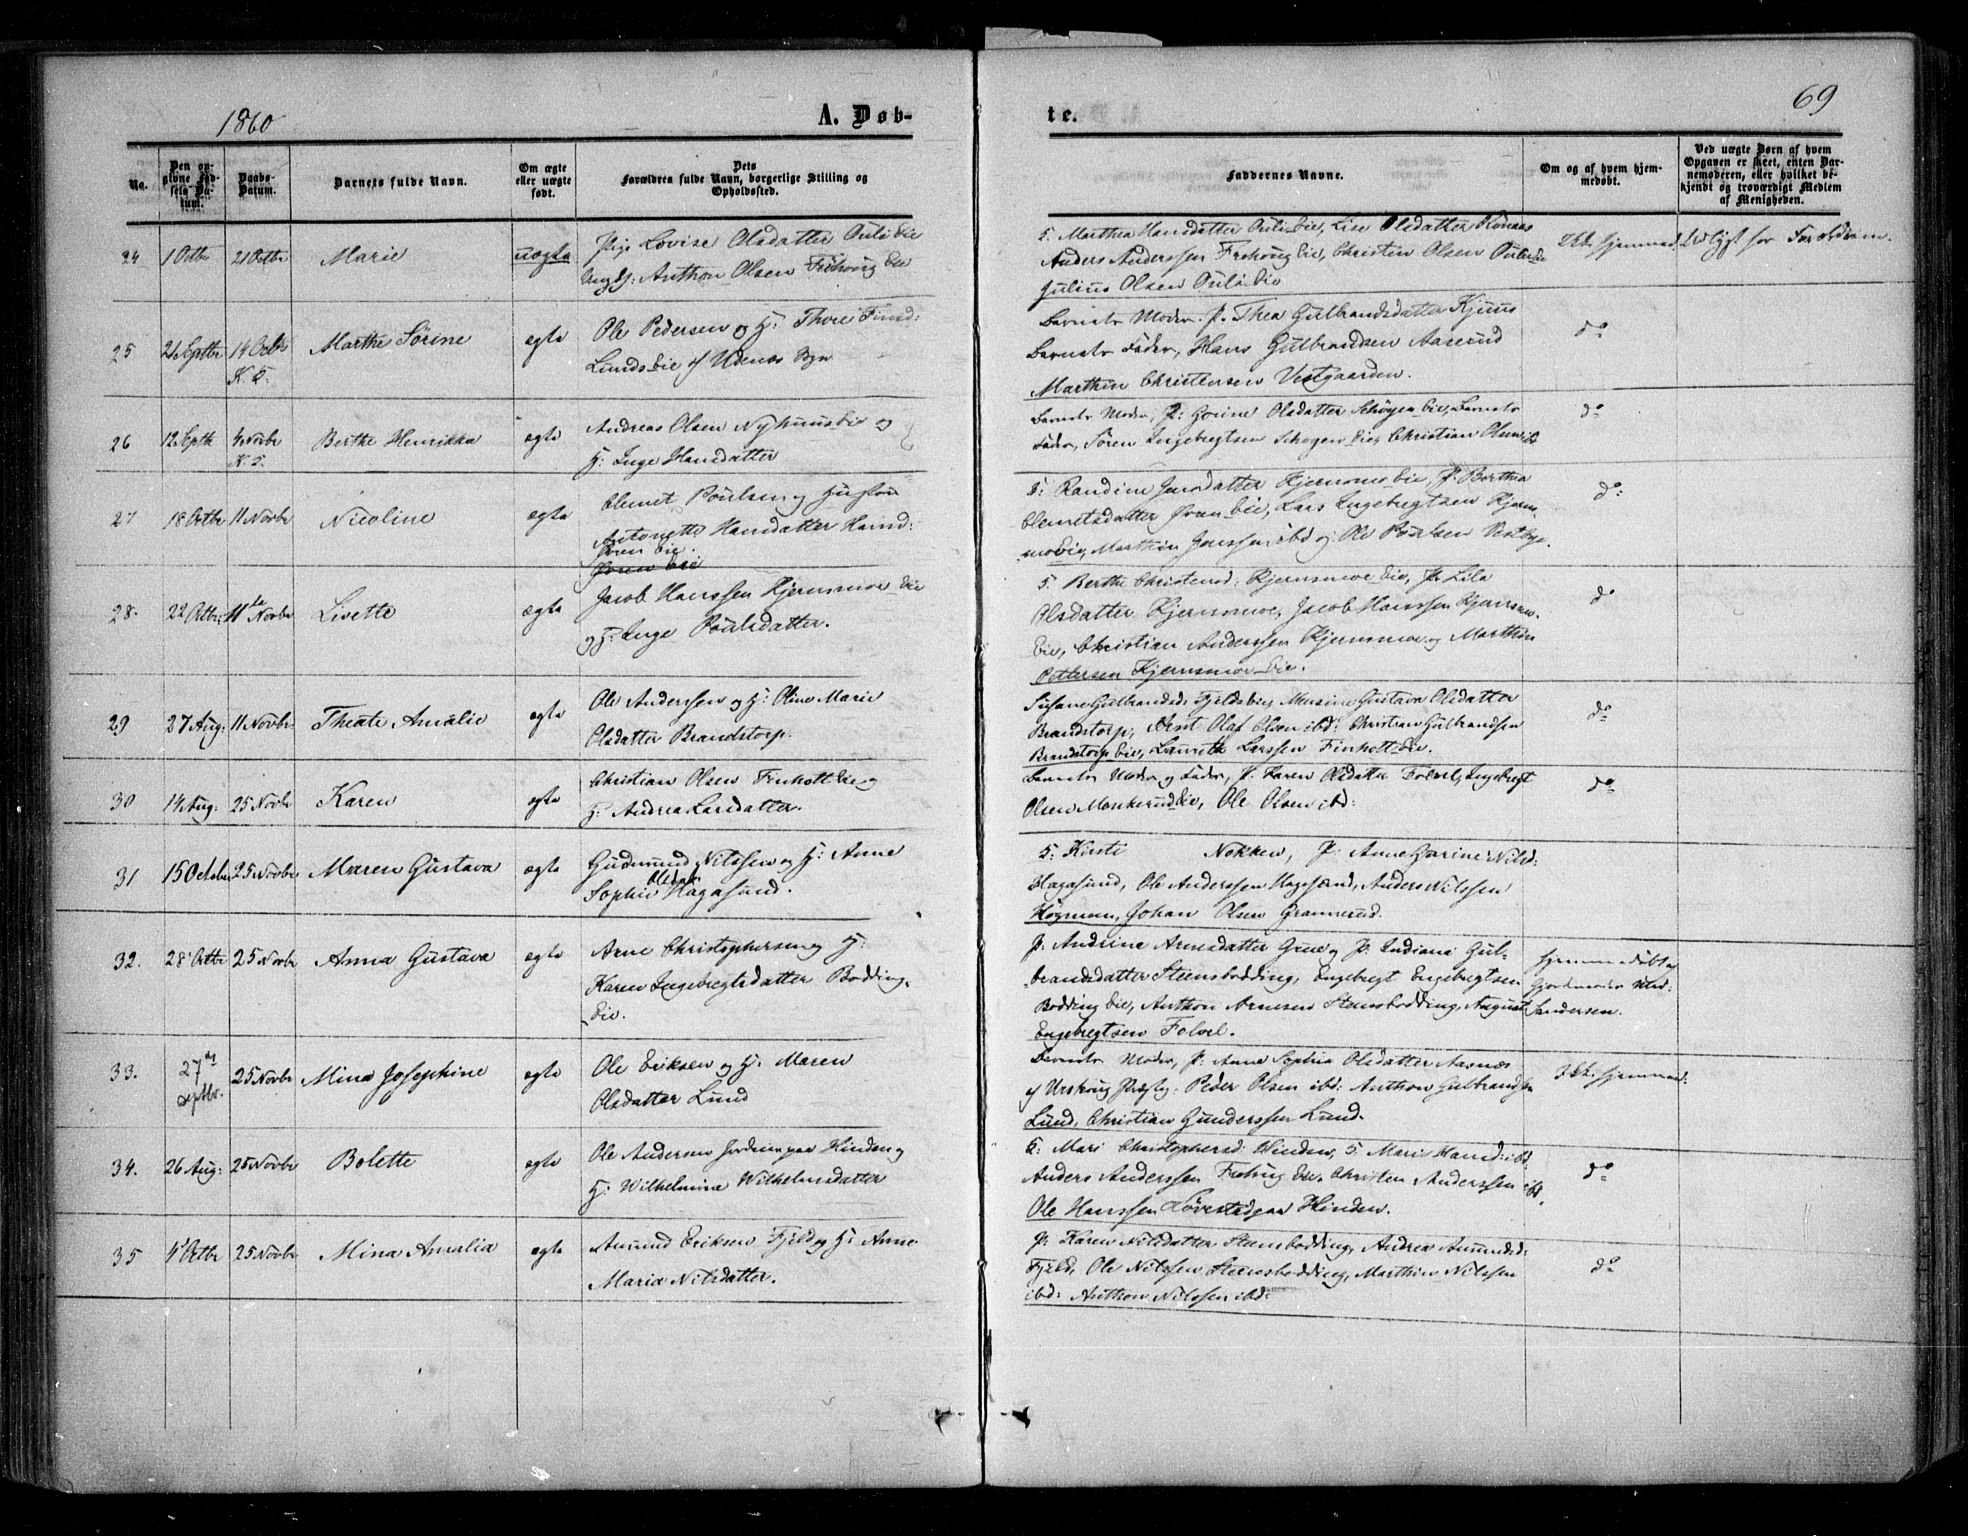 1860
A. Døb-
te.
69
No.
Den an-
givne Fød-
sels Da-
tum.
Daabs-
Datum.
Barnets fulde Navn.
Om ægte
eller uægte
født.
Dets
Forældres fulde Navn, borgerlige Stilling og
Opholdssted.
Faddernes Navne.
Om og af hvem hjem-
medøbt.
Ved uægte Børn af hvem
Opgaven er skeet, enten Bar-
nemoderen, eller hvilket be-
kjendt og troværdigt Medlem
af Menigheden.
24 1 Octbr 21 Octbr Marie uægte Pige Lovise Olsdatter Ouli Eie
Ungk: Anthon Olsen Frøhoug Eie
G. Marthea Hansdatter Ouli Eie, Lise Olsdatter
Anders Anderssen Frøhoug Eie, Christen Olsen
Julius Olsen Ouli Eie
Ikke hjemmed.
25 21 Septbr 14 Octbr Marthe Sørine ægte Ole Pedersen og H: Thore Finsd:
K. K. Lunds Eie af Udenæs Sgn
Barnets Moder, P. Thea Gulbrandsdatter Kjuus
Barnets Fader, Hans Gulbrandsen Aaserud
Marthin Christensen Vestgaarden.
do
26 12 Septb 4 Novbr Berthe Henrikka ægte Andreas Olsen Nyhuus Eie og
K. H: Inge Hansdatter
Barnets Moder, P: Gorine Olsdatter Schøyen Eie, Barnets
Fader, Søren Ingebregtsen Schøyen Eie, Christian Olsen ibd
do
27 18 Octbr 11 Novbr Nicoline ægte Clemet Poulsen og Hustru
Antonette Hansdatter
Øren Eie.
Øren Eie
G: Randine Jensdatter Kjernsmo Eie, P. Berthea
Clemetsdatter Øren Eie, Lars Ingebregtsen Kjern-
mo Eie, Marthin Jenssen ibd og Ole Poulsen Vestbye.
do:
28. 22 Octbr: 11te Novbr Lisette ægte Jacob Hanssen Kjernsmoe Eie
og H: Inge Poulsdatter.
G. Berthe Christensd: Kjernsmoe Eie, P. Lila
Olsdatter Kjernsmoe, Jacob Hanssen Kjernsm.
Eie, Christian Anderssen Kjernsmoe og Marthin
Pettersen Kjernsmoe Eie.
do
29 27 Aug: 11 Novbr Theate Amalie ægte Ole Anderssen og H: Oline Marie
Olsdatter Brandstorp.
Susane Gulbrandsd: Fjeldsbye, Mersine Gustava Olsdatter
Brandstorp, Arnt Olaf Olsen ibd: Christian Gulbrandsen
Brandstorp Eie, Laurits Larssen Finholt Eie.
do
30 14 Aug. 25 Novbr Karen ægte Christian Olsen Finholt Eie og
H: Andrea Larsdatter.
Barnets Moder og Fader, P. Karen Olsdatter Folvel, Ingebregt
Olsen Monkerud Eie, Ole Olsen ibd:
do
31 15 October 25 Novbr Maren Gustava ægte Gudmund Nilssen og H: Anne
Olsdatr
Sophie Hagasund.
G: Kirsti Nokken, P: Anne Gurine Nilsd:
Hagasund, Ole Anderssen Hagasund, Anders Nilssen
Høgmon, Johan Olsen Grannerud.
32. 28 Octbr 25 Novbr Anna Gustava ægte Arne Christophersen og H:
Karen Ingebregtsdatter Bodding
Eie.
P. Andrine Arnesdatter Grue og P. Indiana Gul-
brandsdatter Steensbodding, Engebregt Engebregtsen
Bodding Eie, Anthon Arnesen Steensbodding, August
Engebregtsen Folvel.
Hjemmedøbt af
Gjordmoder
Sandersen.
33. 27de Septbr. 25 Novbr Mina Josephine ægte Ole Eriksen og H. Maren
Olsdatter Lund
Barnets Moder, P. Anne Sophia Olsdatter Aasnæs
af Urskoug Præstg. Peder Olsen ibd: Anthon Gulbrandsen
Lund, Christian Gunderssen Lund.
Ikke hjemmed:
34. 26 Aug: 25 Novbr Bolette ægte Ole Andersen Jordmo paa Hinden og
H: Wilhelmine Wilhelmsdatter
G: Mari Christophersd: Hinden, G. Mari Hansd: ibd,
Anders Anderssen Frøhoug Eie, Christen Anderssen ibd,
Ole Hanssen Løvestad paa Hinden.
do
35 4 Octbr 25 Novbr Mina Amalia ægte Amund Eriksen Fjeld og H: Anne
Maria Nilsdatter.
P: Karen Nilsdatter Steensbodding, Andrea Amundsd:
Fjeld, Ole Nilssen Steensbodding, Marthin Nilssen
ibd: Anthon Nilssen ibd:
do